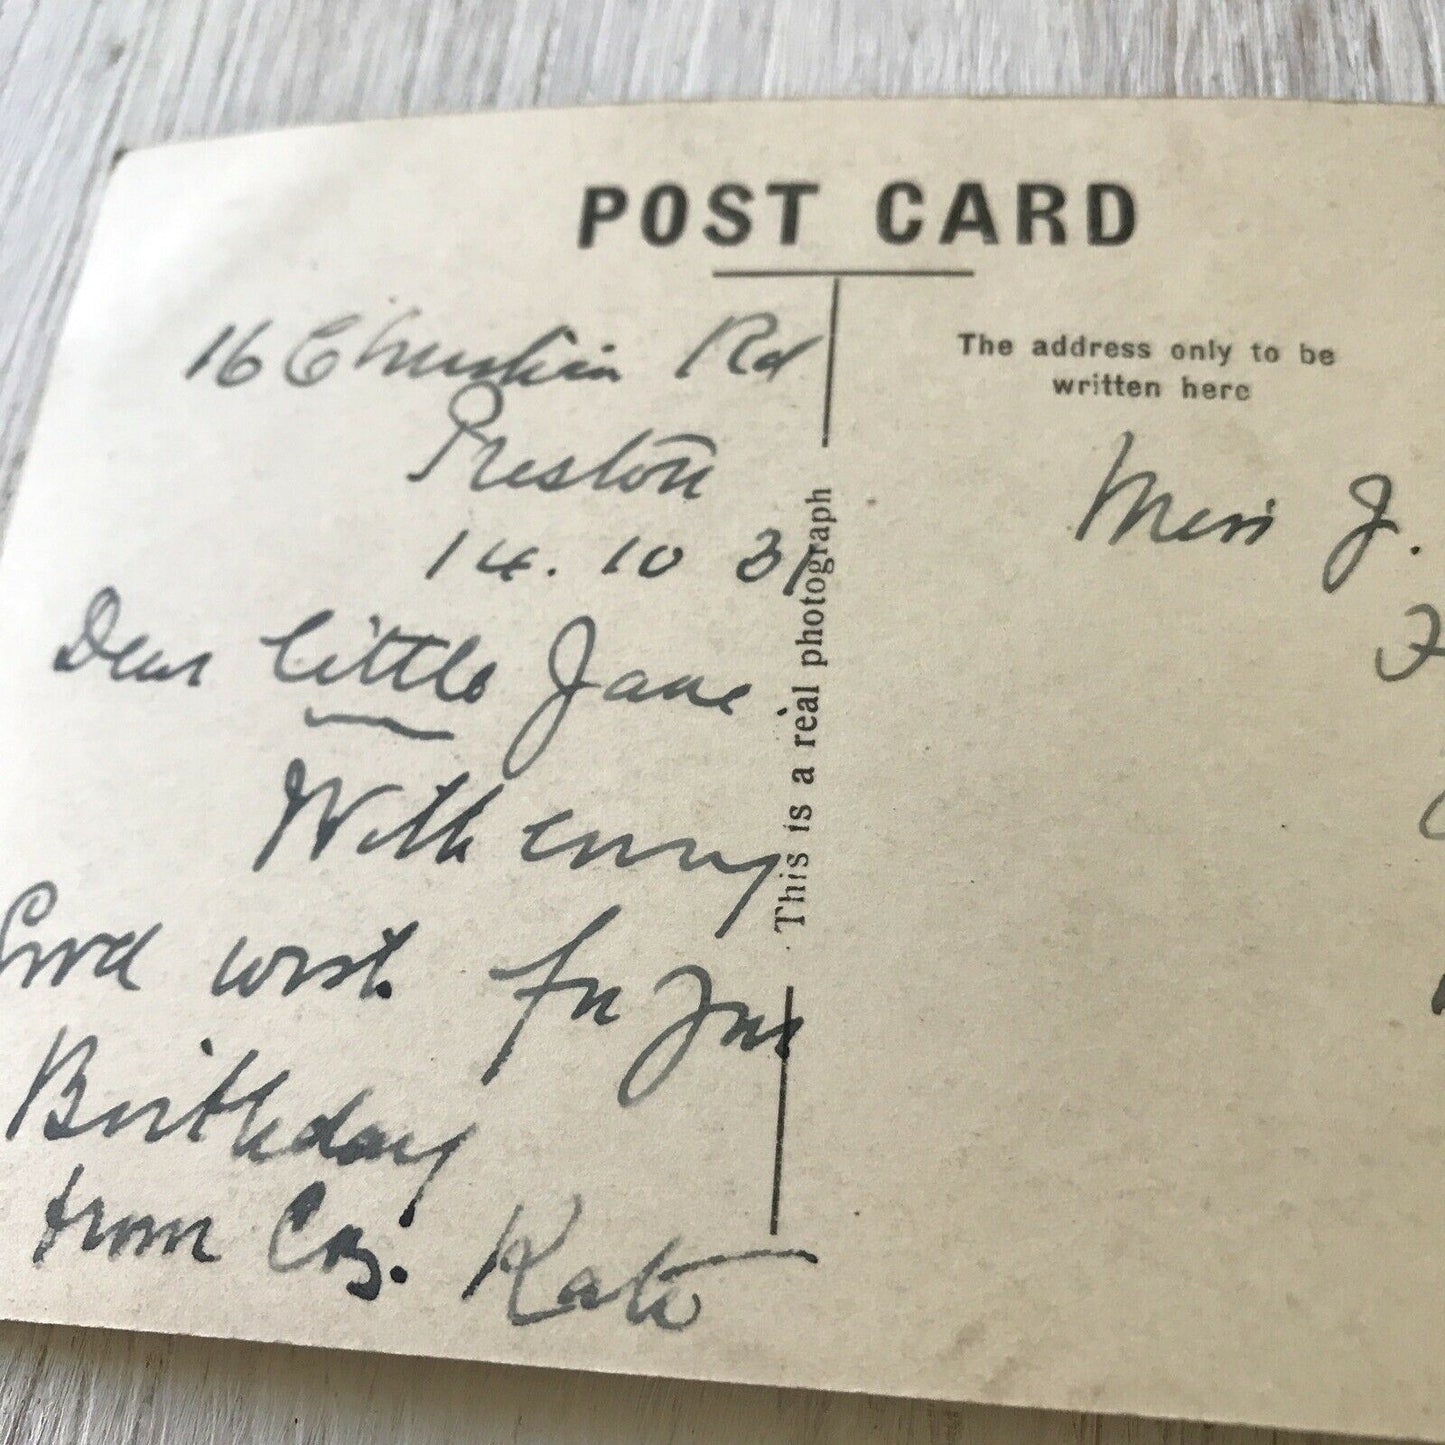 POST CARD
16 Christian Rd
Preston
14. 10 31
Dear little Jane
With every
Good wish for your
Birthday
from Coz. Kate
This is a real photograph
The address only to be
written here
Miss J.